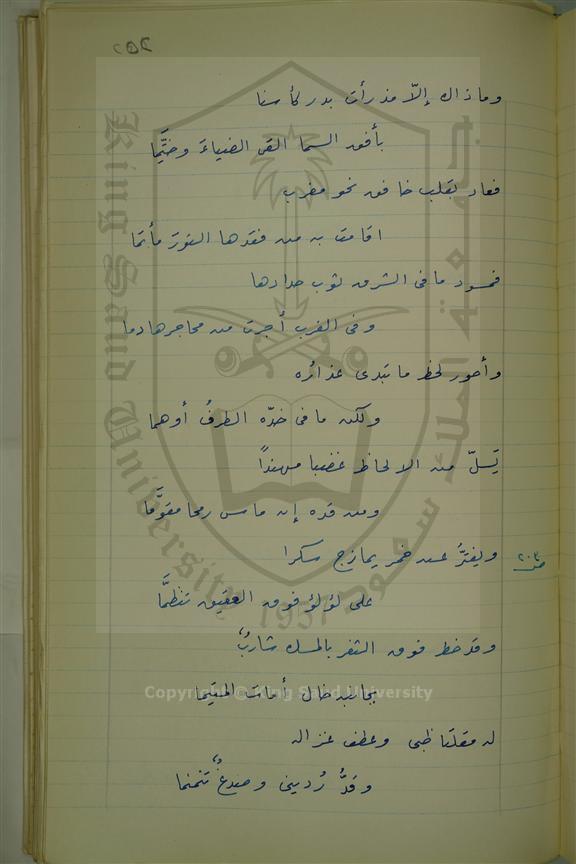 202
وما ذاك إلّا مذ رأت بدر كأسنا
بأفق السما القى الضياءَ وخيَّما
فعاد بقلب خافق نحو مغرب
اقامت به من فقدها النورَ مأتما
فمسود ما فى الشرق ثوب حدادها
وفى الغرب أجرت من محاجرها دما
وأحور لحظ ما تبدى عذاره
ولكن ما فى خدّه الطرفُ أوهما
يَسلّ من الالحاظ عضبا مهنداً
ومن قده إن ماس رمحا مقوَّما
ويفترُّ عن خمر يمازج سكرا
على لؤلؤ فوق العقيق تنظمَّا
ص ٢٠٣
وقد خط فوق الثغر بالمسك شاربٌ
بجانبه خال أمات المتيما
له مقلتا ظبى وعطف غزاله
وقدُّ رُدينى وصدغٌ تنمنما
King Saud University
1957
جامعة الملك سعود
Copyright © King Saud University